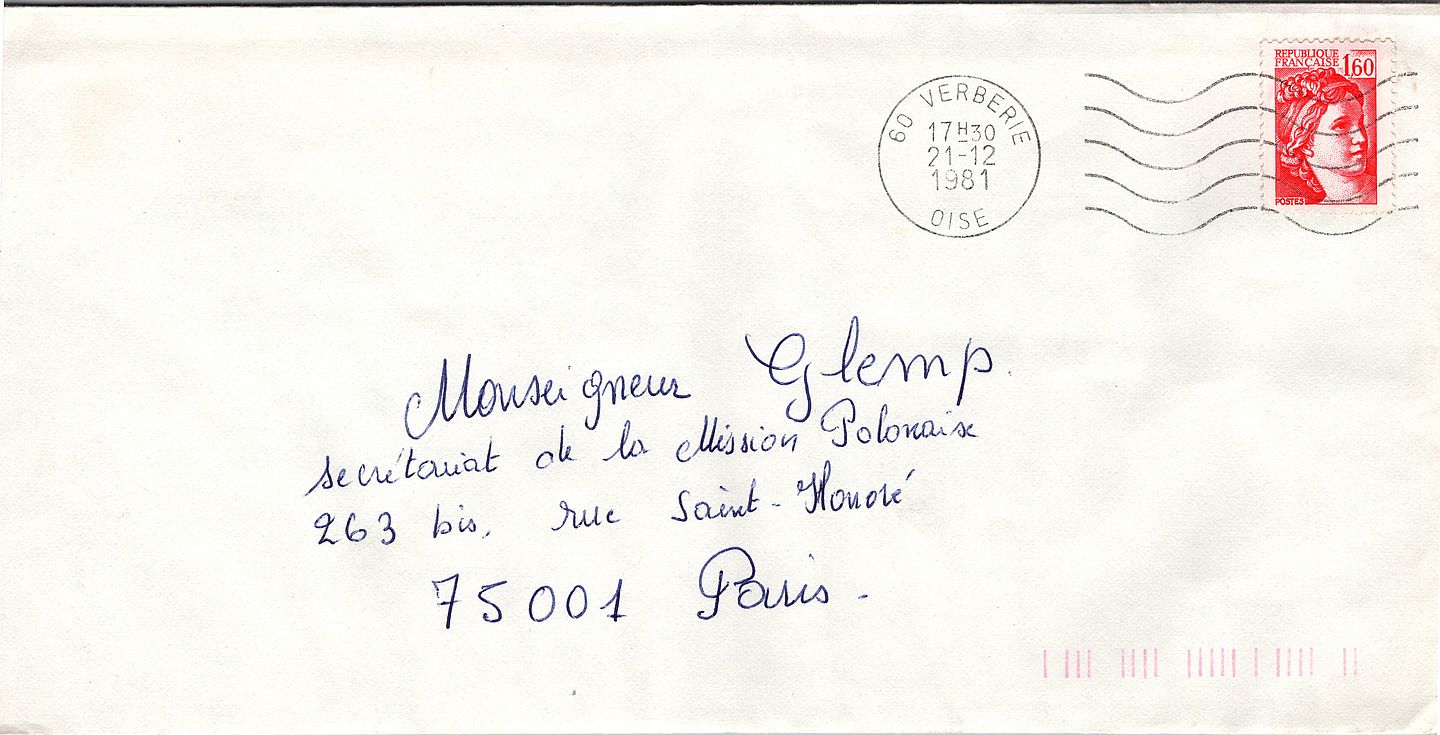 60 VERBERIE
17H30
21-12
1981
OISE
REPUBLIQUE
FRANÇAISE 1,60
POSTES
Monseigneur Glemp.
secrétariat de la Mission Polonaise
263 bis, rue Saint-Honoré
75001 Paris.